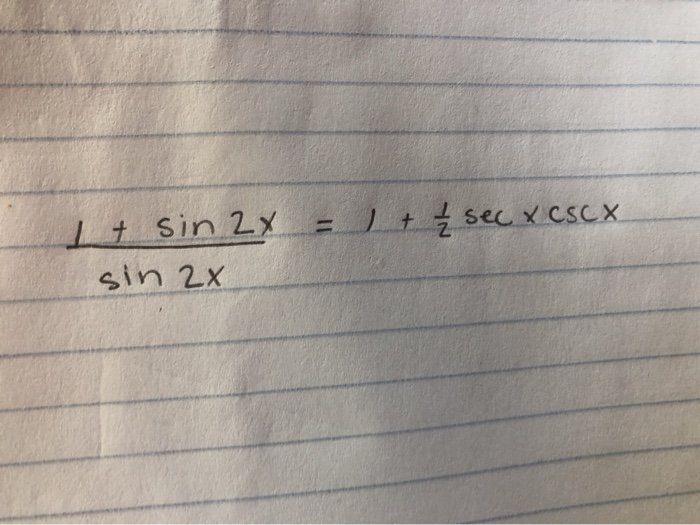 1 + sin 2x = 1 + 1/2 sec x csc x
sin 2x